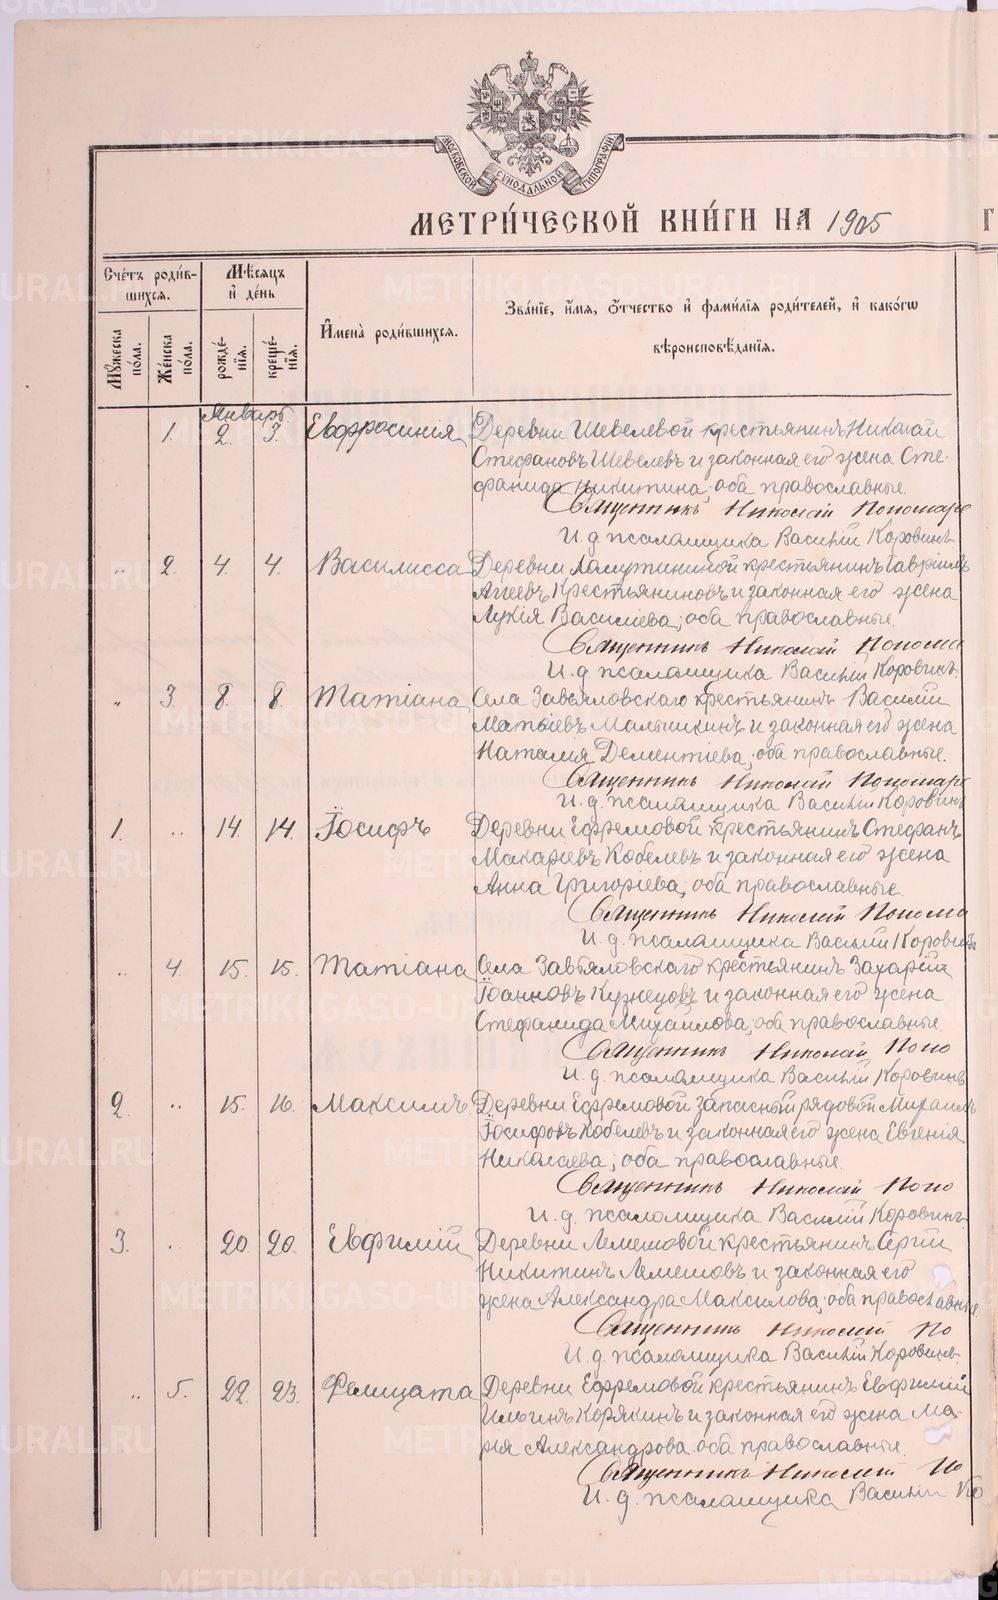 МОСКОВСКОЙ СѴНОДАЛЬНОЙ ТИПОГРАФІИ
МЕТРИ́ЧЕСКОЙ КНИ́ГИ НА 1905 Г
Сче́тъ роди́в-
шихся.
Мѣсяцъ
и҆ де́нь
Мꙋжеска
по́ла.
Же́нска
по́ла.
рожде́-
нїя.
креще́-
нїя.
И҆мена̀ роди́вшихся.
Зва́нїе, и҆́мя, ѻ҆́тчество и҆ фами́лїя роди́телей, и҆ како́гѡ
вѣроисповѣ́данїя.
Январь
1. 2. 3. Евфросинія Деревни Шевелевой крестьянинъ Николай
Стефановъ Шевелевъ и законная его жена Сте-
фанида Никитина, оба православные.
Священникъ Николай Пономаре
И. д. псаломщика Василій Коровинъ
„ 2. 4. 4. Василисса Деревни крестьянинъ Гавріилъ
Агеевъ Крестьяниновъ и законная его жена
Лукія Василіева, оба православные.
Священникъ Николай Понома
И. д. псаломщика Василій Коровинъ.
„ 3. 8. 8. Татіана Села Завьяловскаго крестьянинъ Василій
Матѳіевъ Малышкинъ и законная его жена
Наталія Дементіева, оба православные.
Священникъ Николай Пономаре
И. д. псаломщика Василій Коровинъ
1. „ 14. 14. Іосифъ Деревни Ефремовой крестьянинъ Стефанъ
Макаріевъ Кобелевъ и законная его жена
Анна Григоріева, оба православные.
Священникъ Николай Понома
И. д. псаломщика Василій Коровинъ
„ 4. 15. 15. Татіана Села Завьяловскаго крестьянинъ Захарій
Іоанновъ Кузнецовъ и законная его жена
Стефанида Михаилова, оба православные.
Священникъ Николай Поно
И. д. псаломщика Василій Коровинъ
2. „ 15. 16. Максимъ Деревни Ефремовой запасный рядовой Михаилъ
Іосифовъ Кобелевъ и законная его жена Евгенія
Николаева, оба православные.
Священникъ Николай Поно
И. д. псаломщика Василій Коровинъ.
3. „ 20. 20. Евфимій Деревни Лемешовой крестьянинъ Сергій
Никитинъ Лемешовъ и законная его
жена Александра Максимова, оба православные.
Священникъ Николай По
И. д. псаломщика Василій Коровинъ.
„ 5. 22. 23. Фелицата Деревни Ефремовой крестьянинъ Евфимій
Ильинъ Корякинъ и законная его жена Ма-
рія Александрова, оба православные.
Священникъ Николай По
И. д. псаломщика Василій Ко
METRIKI.GASO-URAL.RU